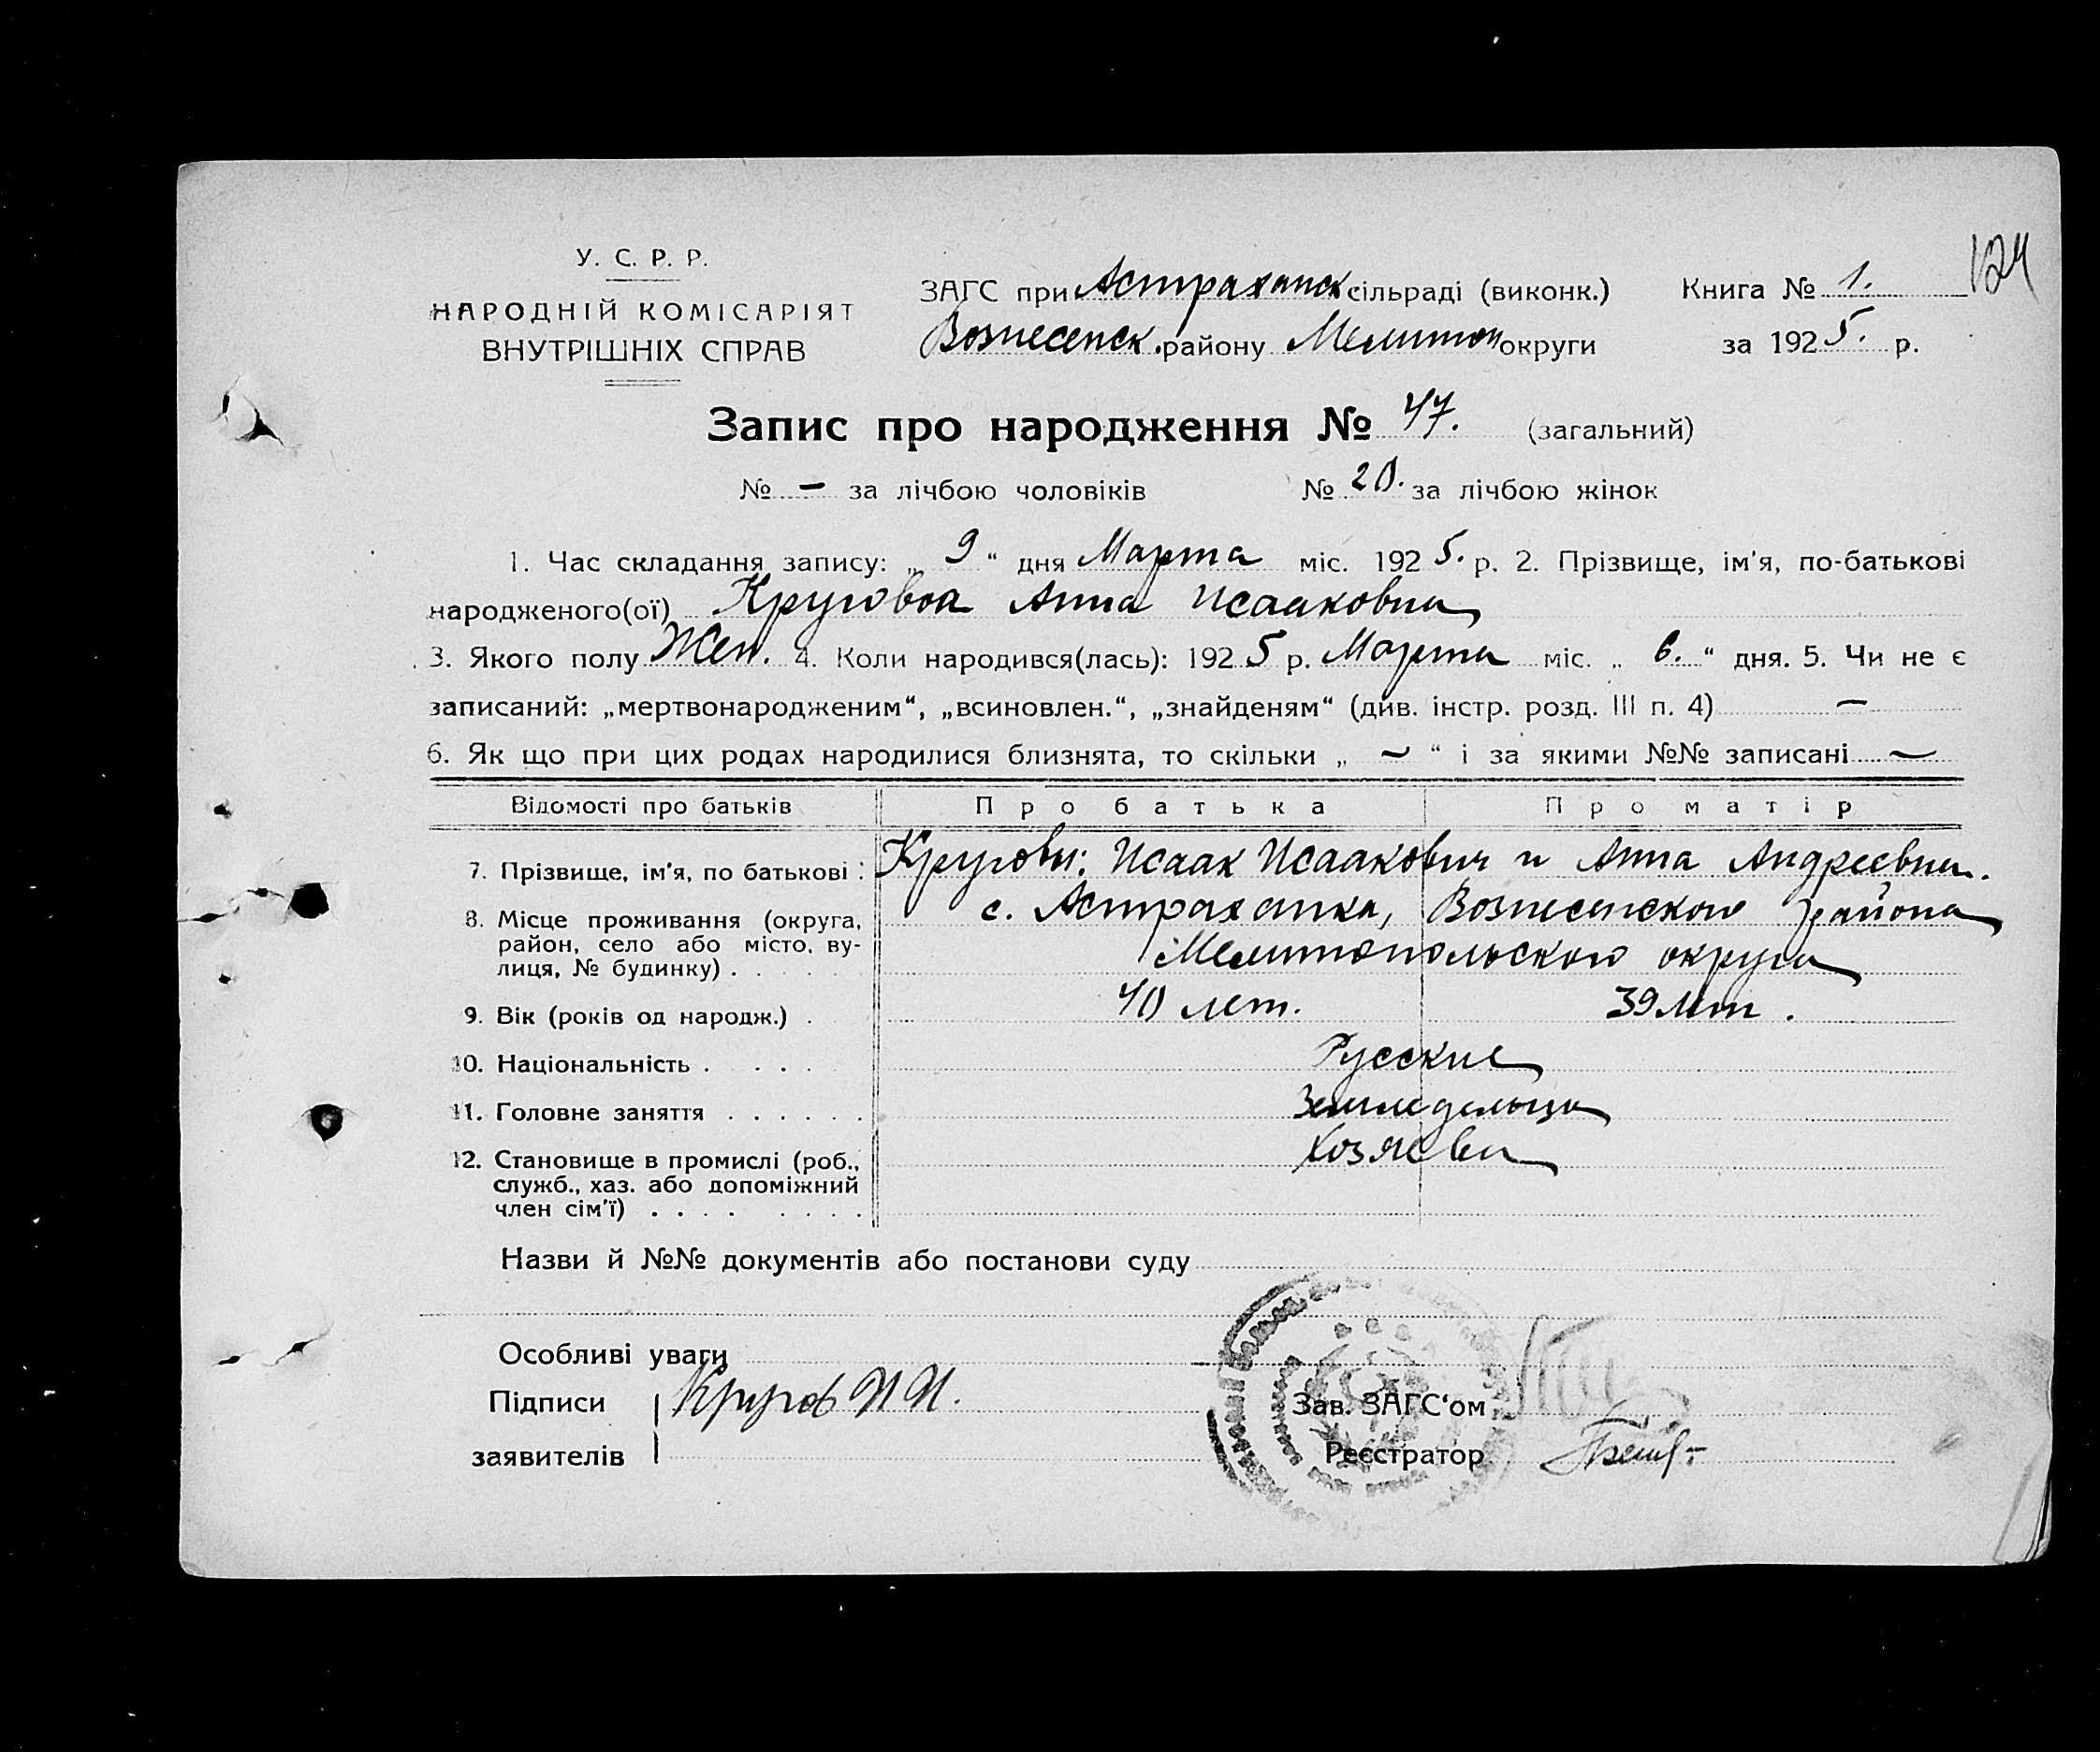 124
У. С. Р. Р.
НАРОДНІЙ КОМІСАРІЯТ
ВНУТРІШНІХ СПРАВ
ЗАГС при Астраханск сільраді (виконк.) Книга № 1.
Вознесенск. району Мелитоп округи за 1925. р.
Запис про народження № 47. (загальний)
№ — за лічбою чоловіків № 20. за лічбою жінок
1. Час складання запису: „ 9 “ дня Марта міс. 1925. р. 2. Прізвище, ім'я, по-батькові
народженого(ої) Кругова Анна Исааковна
3. Якого полу Жен. 4. Коли народився(лась): 1925 р. Марта міс. „ 6. “ дня. 5. Чи не є
записаний: „мертвонародженим“, „всиновлен.“, „знайденям“ (див. інстр. розд. III п. 4) —
6. Як що при цих родах народилися близнята, то скільки „ — “ і за якими №№ записані —
Відомості про батьків Про батька Про матір
7. Прізвище, ім'я, по батькові : Круговы: Исаак Исаакович и Анна Андреевна.
8. Місце проживання (округа, с. Астраханка, Вознесенского района
район, село або місто, ву-
лиця, № будинку) . Мелитопольского округа
9. Вік (років од народж.) . 40 лет. 39 лет.
10. Національність . . . . Русские
11. Головне заняття . . . . . . Земледельцы
12. Становище в промислі (роб., Хозяева
служб., хаз. або допоміжний
член сім'ї) . . . . . . . .
Назви й №№ документів або постанови суду
Особливі уваги
Підписи Кругов И И.
заявителів
Зав. ЗАГС‘ом
Реєстратор